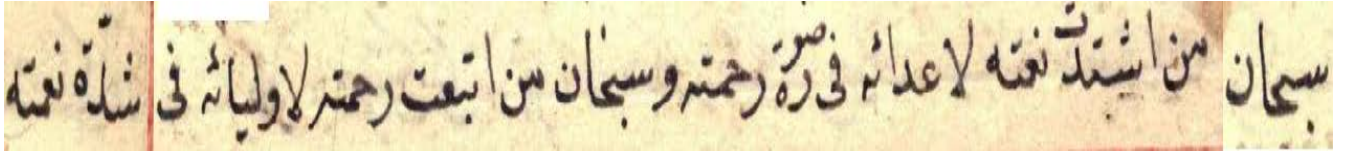 سبحان من اشتدت نقمته لاعدائه فی صورة رحمته و سبحان من اتبعت رحمته لاولیائه فی شدّة نقمته